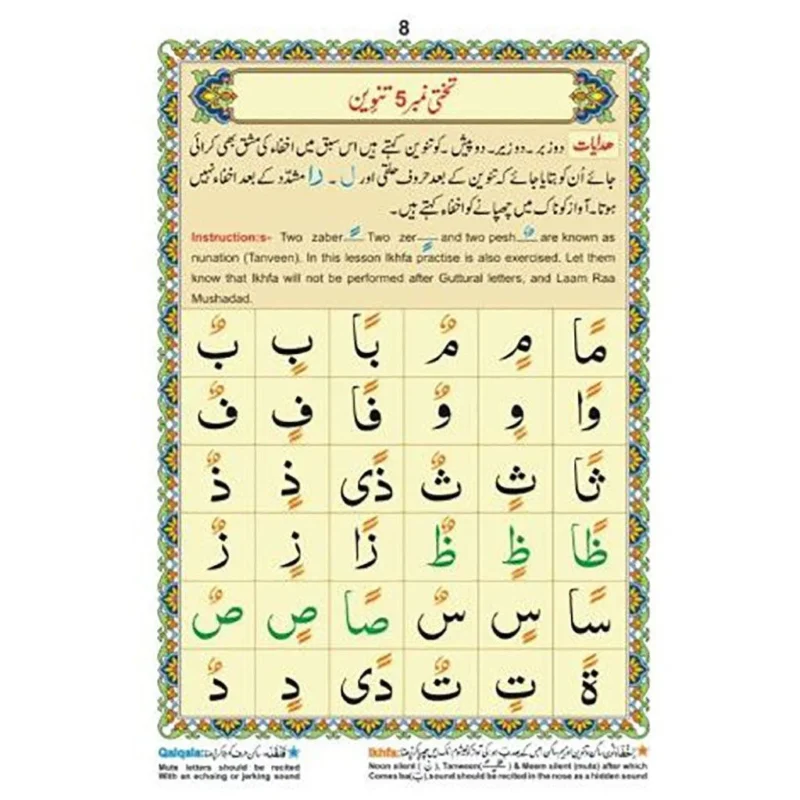 8
تختی نمبر 5 تنوین
ھدایات دو زبر۔ دو زیر۔ دو پیش۔ کو تنوین کہتے ہیں اس سبق میں اخفاء کی مشق بھی کرائی
جائے اُن کو بتایا جائے کہ تنوین کے بعد حروف حلقی اور ل۔ را مشدّد کے بعد اخفاء نہیں
ہوتا۔ آواز کو ناک میں چھپانے کو اخفاء کہتے ہیں۔
Instruction:s- Two zaber ً Two zer ٍ and two pesh ٌ are known as
nunation (Tanveen). In this lesson Ikhfa practise is also exercised. Let them
know that Ikhfa will not be performed after Guttural letters, and Laam Raa
Mushadad.
مًا مٍ مٌ بًا بٍ بٌ
وًا وٍ وٌ فًا فٍ فٌ
ثًا ثٍ ثٌ ذًی ذٍ ذٌ
ظًا ظٍ ظٌ زًا زٍ زٌ
سًا سٍ سٌ صًا صٍ صٌ
ةً تٍ تٌ دًی دٍ دٌ
Ikhfa:
Noon silent (نْ), Tanween( ًٍ ) & Meem silent (mute) after which
Comes ba(بَ), sound should be recited in the nose as a hidden sound
Qalqala:
Mute letters should be recited
With an echoing or jerking sound